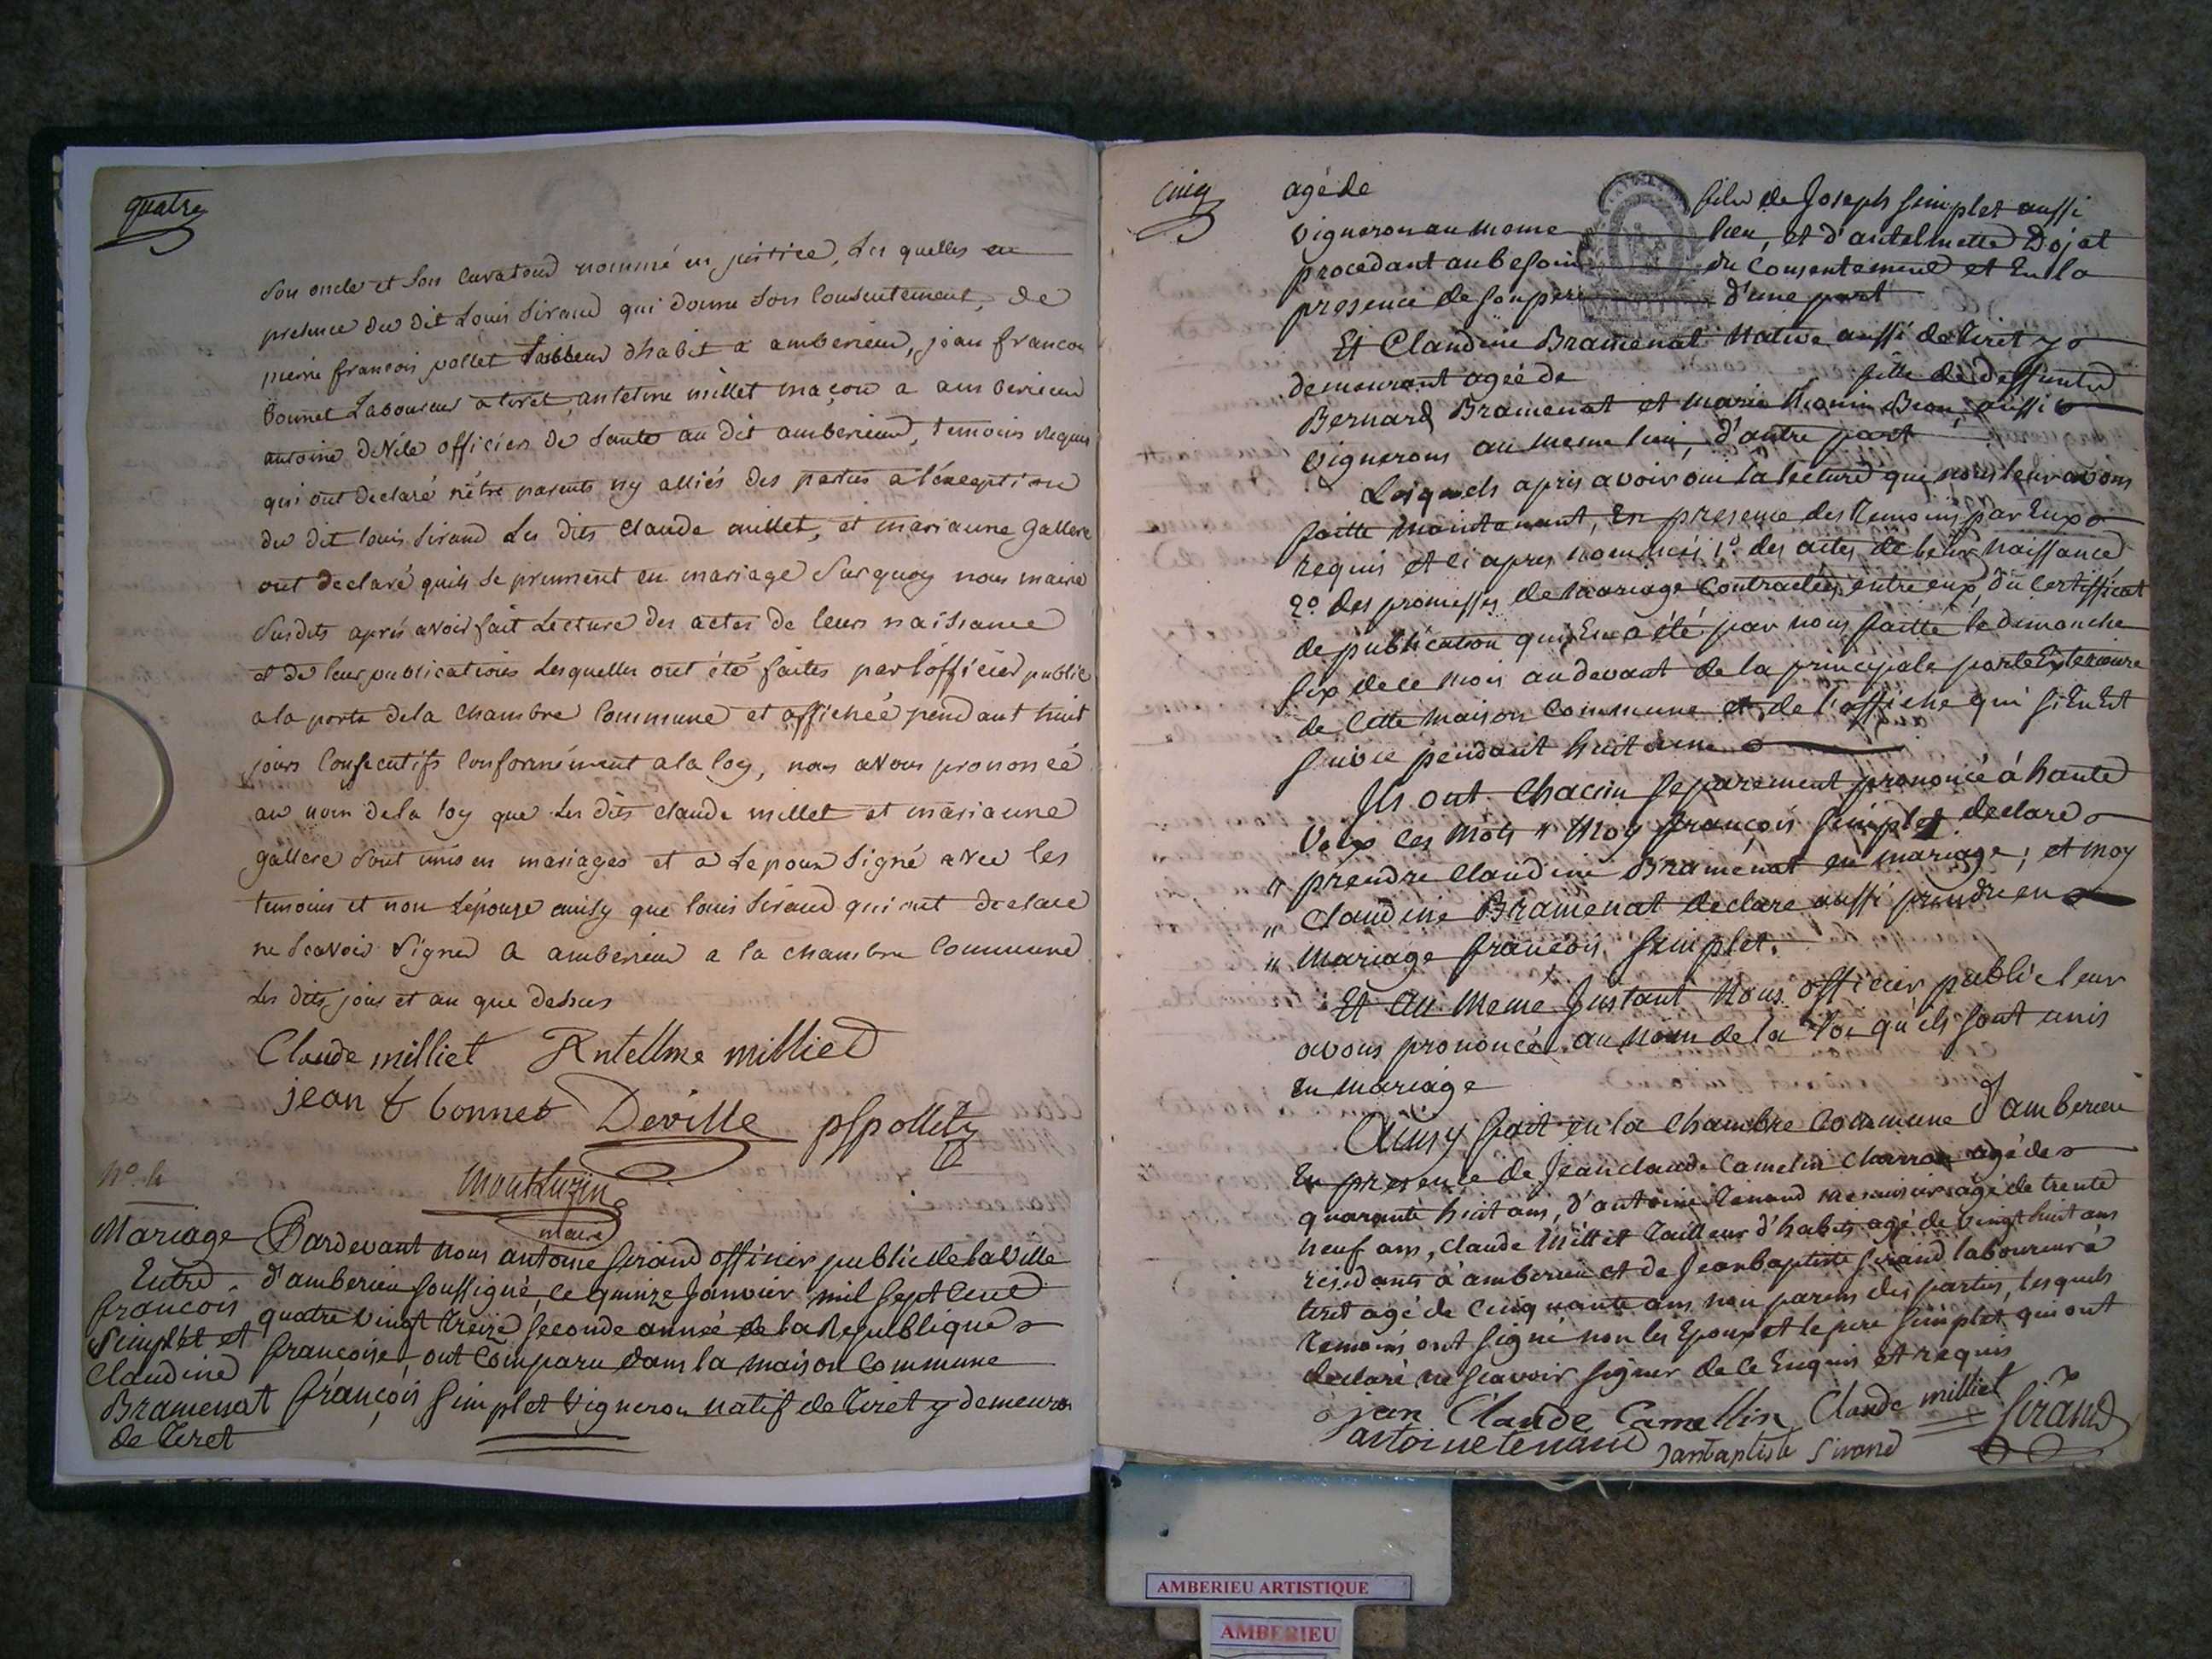 quatre
son oncle et son curateur nommé en justice, les quelles en
presence du dit Louis Sirand qui donne son consentement, de
pierre francois pollet tailleur dhabit a amberieu, jean francois
bonnet Laboureur a tiret, antelme millet maçon a amberieu
antoine deVile officier de Santé au dit amberieu, temoins requis
qui ont declaré n'être parents ny alliés des parties a l'exception
du dit louis Sirand Les dits Claude millet, et marianne Gallere
ont declaré quils se prennent en mariage Sur quoy nous maire
Susdits aprés avoir fait Lecture des actes de leurs naissance
et de leur publications Lesquelles ont été faites par l'officier public
a la porte dela chambre Commune et affichéé pendant huit
jours Consecutifs Conformément a la loy, nous aVons prononcé
au nom dela loy que Les dits Claude millet et marianne
gallere Sont unis en mariages et a Lepoux Signé avec les
temoins et non Lépouse ainsy que louis Sirand qui ont declaré
ne Scavoir Signer a amberieu a la chambre Commune
Les dits jour et an que dessus
Claude milliet Antellme milliet
jean f bonnet Deville pfpollet
Montluzin
maire
N°. 4
Mariage
Entre
francois
Simplet et
Claudine
Bramenat
de Tiret
Pardevant nous antoine Sirand officier public de la Ville
d'amberieu soussigné, ce quinze Janvier mil sept Cent
quatre vingt treize seconde année de la Republique
francoise, ont Comparu dans la maison Commune
françois Simplet Vigneron natif de Tiret y demeuran
Cinq
agé de fils de Joseph Simplet aussi
Vigneron au meme lieu, et d'antelmette Dojat
procedant au besoin du Consentement et En la
presence de son pere d'une part
Et Claudine Bramenat Native aussi de Tiret y
demeurant agée de fille de deffunts
Bernard Bramenat et marie Bron, aussi
Vignerons au meme lieu, d'autre part
Lesquels apres avoir oui la lecture que nous leur avons
faitte maintenant, En presence des Temoins par Eux
requis et ci apres nommés 1°. des actes de leur naissance
2°. des promesses de mariage Contractées entre eux, du Certifficat
de publication qui En a été par nous faitte le dimanche
six de ce mois au devant de la principale porte Exterieure
de Cette maison Commune et de l'affiche qui s'En Est
suivie pendant huitaine
Ils ont Chacun separement prononcé à haute
Voix ces Mots " Moy françois Simplet declare
" prendre Claudine Bramenat en mariage; et moy
" Claudine Bramenat declare aussi prendre en
" Mariage francois Simplet.
Et au meme Instant Nous officier public leur
avons prononcé au Nom de la Loi qu'ils sont unis
En mariage
Ainsy fait en la Chambre Commune d'amberieu
En presence de Jean claude Camelin Charron agé de
quarante huit ans, d'antoine Tenand agé de trente
neuf ans, Claude Milliet Tailleur d'habits agé de vingt huit ans
residants à amberieu et de Jean baptiste Sirand laboureur à
tiret agé de Cinquante ans non parens des parties, lesquels
Temoins ont signé non les Epoux et le pere Simplet qui ont
declaré ne scavoir signer de ce Enquis et requis
jean Claude Camellin Claude milliet Sirand
antoine tenand Janbaptiste Sirand
AMBERIEU ARTISTIQUE
AMBERIEU